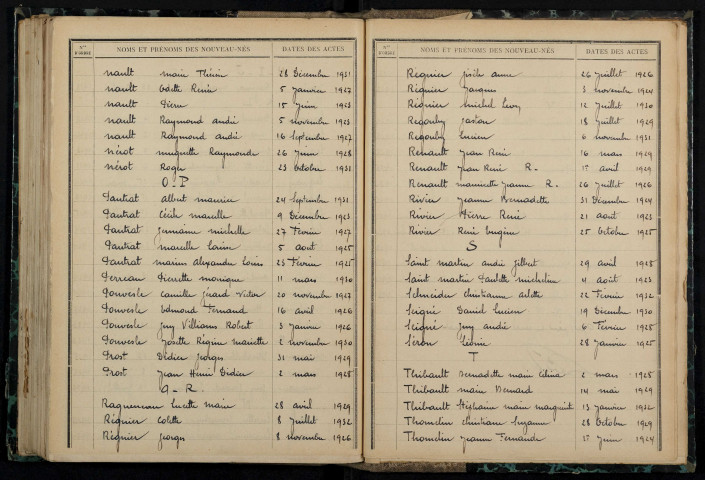 Nos D'ORDRE NOMS ET PRÉNOMS DES NOUVEAU-NÉS DATES DES ACTES
nault marie Thérèse 28 Décembre 1931
nault Odette Renée 5 Janvier 1927
nault Pierre 15 Juin 1923
nault Raymond andré 5 novembre 1923
nault Raymond andré 16 Septembre 1927
nérot muguette Raymonde 26 Juin 1928
nérot Roger 23 Octobre 1931
O-P
Pautrat albert maurice 24 Septembre 1931
Pautrat Cécile marcelle 9 Décembre 1923
Pautrat Germaine michelle 27 Février 1927
Pautrat marcelle Louise 5 août 1925
Pautrat marius alexandre Louis 23 Février 1925
Perreau Pierrette monique 11 mars 1930
Ponvesle Camille Gérard Victor 20 novembre 1927
Ponvesle Edmond Fernand 16 avril 1926
Ponvesle Guy Williams Robert 3 Janvier 1926
Ponvesle Josette Régine mariette 2 novembre 1930
Prost Didier Georges 31 mai 1929
Prost Jean Henri Didier 2 mars 1928
Q-R.
Raqueneau Lucette marie 28 avril 1929
Régnier Colette 8 Juillet 1932
Régnier Georges 8 novembre 1926
Nos D'ORDRE NOMS ET PRÉNOMS DES NOUVEAU-NÉS DATES DES ACTES
Régnier anne 26 Juillet 1926
Régnier Jacques 3 novembre 1924
Régnier michel 12 Juillet 1930
Regouby Gaston 18 Juillet 1929
Regouby Lucien 6 novembre 1931
Renault Jean René 16 mars 1929
Renault Jean René R. 1er avril 1929
Renault Jeanne R. 26 Juillet 1926
Rivier Jeanne Bernadette 31 Décembre 1924
Rivier Pierre René 21 août 1923
Rivier René Eugène 25 Octobre 1925
S
Saint martin andré Gilbert 29 avril 1925
Saint martin Paulette micheline 4 août 1923
Schneider Christianne arlette 22 Février 1932
Seigné Daniel Lucien 19 Décembre 1930
Seigné Guy andré 6 Février 1928
Séron Léonie 28 Janvier 1925
T
Thibault Bernadette marie 2 mars 1928
Thibault marie Bernard 14 mai 1929
Thibault Stéphanie marie marguerite 13 Janvier 1932
Thomelin Christiane Suzanne 28 Octobre 1929
Thomelin Jeanne Fernande 1er Juin 1924